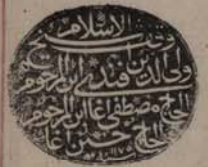 الاسلام
ولى الدين افندى ابن المرحوم
الحاج مصطفى اغا ابن المرحوم
الحاج حسين اغا